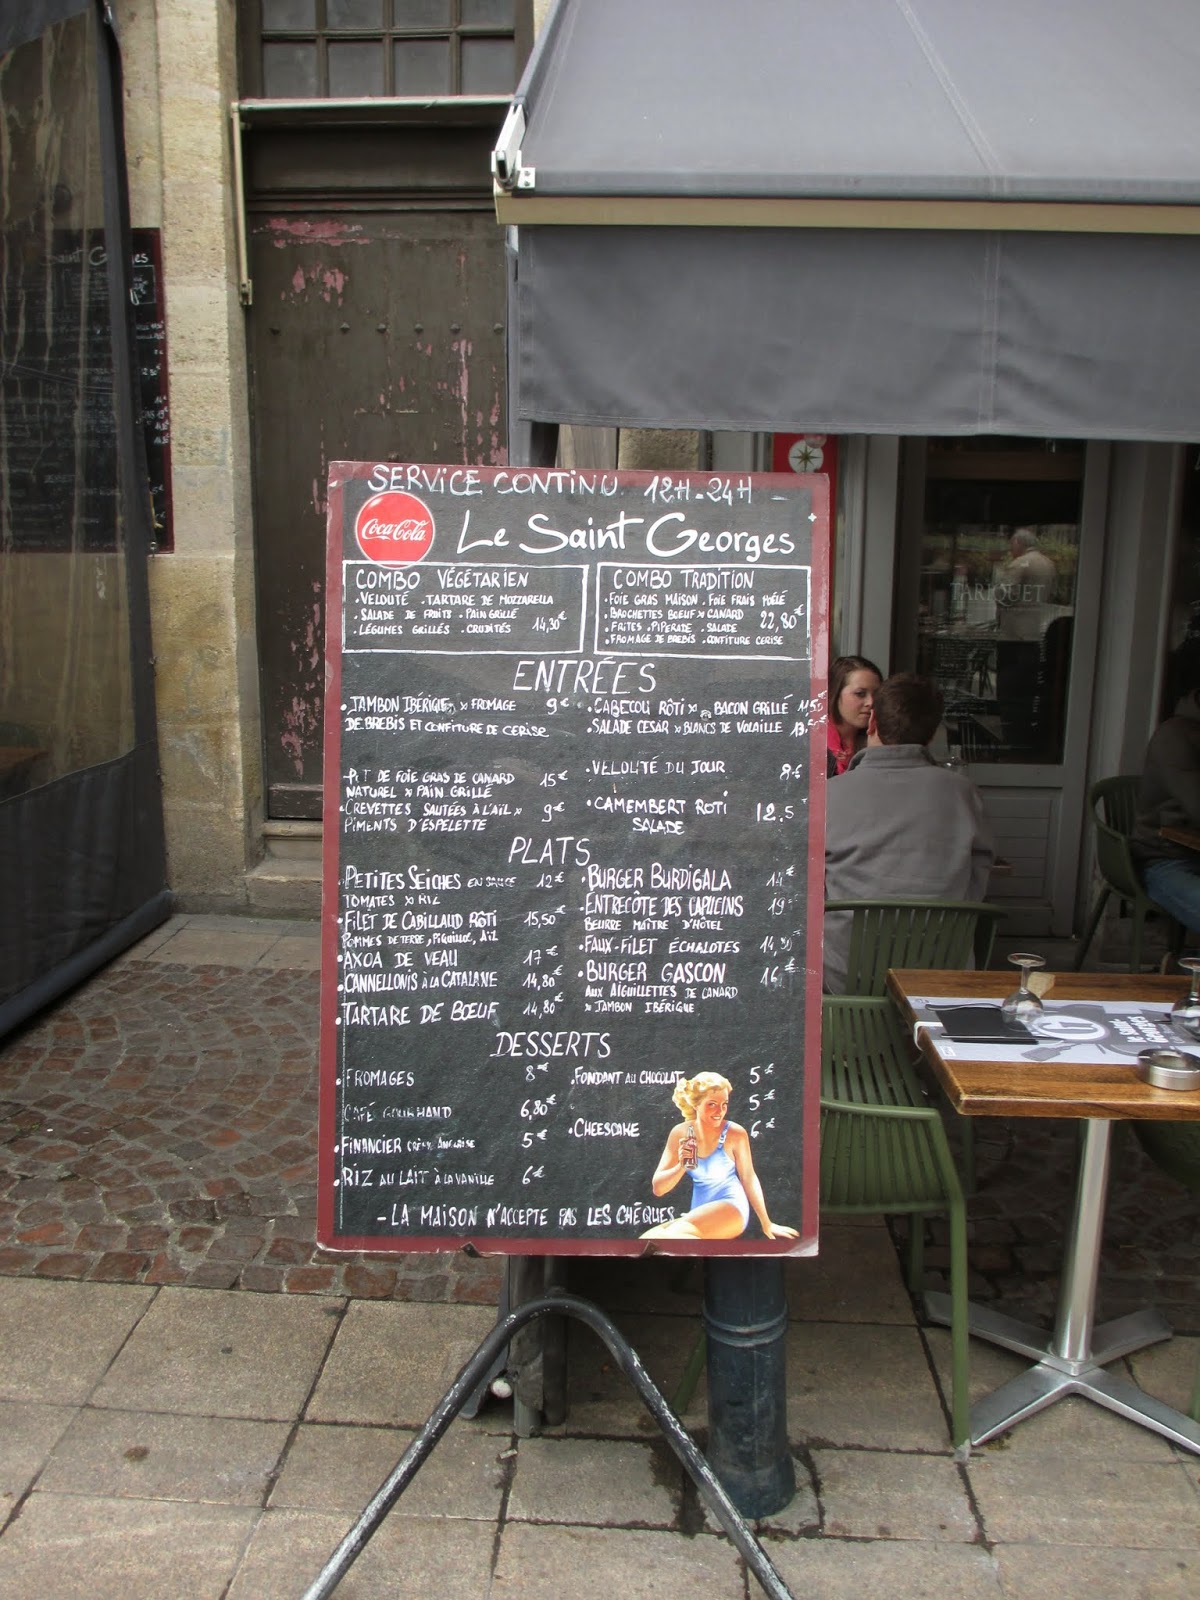 SERVICE CONTINU 12H-24H
Coca-Cola
Le Saint Georges
COMBO VÉGÉTARIEN
.VELOUTÉ .TARTARE DE MOZZARELLA
.SALADE DE FRUITS .PAIN GRILLÉ
.LÉGUMES GRILLÉS .CRUDITÉS 14,30€
COMBO TRADITION
.FOIE GRAS MAISON .FOIE FRAIS POÊLÉ
.BROCHETTES BOEUF x CANARD 22,80€
.FRITES .PIPERADE .SALADE
.FROMAGE DE BREBIS .CONFITURE CERISE
ENTRÉES
.JAMBON IBÉRIQUE x FROMAGE 9€
DE BREBIS ET CONFITURE DE CERISE
-P.T DE FOIE GRAS DE CANARD 15€
NATUREL x PAIN GRILLÉ
.CREVETTES SAUTÉES À L'AIL x 9€
PIMENTS D'ESPELETTE
.CABECOU RÔTI x BACON GRILLÉ
.SALADE CESAR x BLANCS DE VOLAILLE
.VELOUTÉ DU JOUR 8€
.CAMEMBERT ROTI 12.5
SALADE
PLATS
.PETITES SEICHES EN SAUCE 12€
TOMATES x RIZ
.FILET DE CABILLAUD RÔTI 15,50€
POMMES DE TERRE, PIQUILLOS, AIL
.AXOA DE VEAU 17€
.CANNELLONIS À LA CATALANE 14,80€
.TARTARE DE BOEUF 14,80€
.BURGER BURDIGALA 14€
.ENTRECÔTE DES CAPUCINS 19
BEURRE MAÎTRE D'HÔTEL
.FAUX-FILET ÉCHALOTES
.BURGER GASCON 16€
AUX AIGUILLETTES DE CANARD
x JAMBON IBÉRIQUE
DESSERTS
.FROMAGES 8€
CAFÉ GOURMAND 6,80€
.FINANCIER CRÈME ANGLAISE 5€
.RIZ AU LAIT À LA VANILLE 6€
.FONDANT AU CHOCOLAT 5€
5€
.CHEESCAKE 6€
-LA MAISON N'ACCEPTE PAS LES CHÈQUES-
TARIQUET
Saint Georges